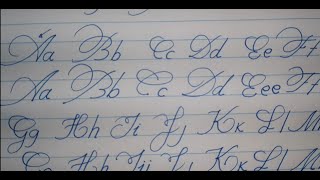 Aa Bb Cc Dd Ee Ff
Aa Bb Cc Dd Eee Ff
Gg Hh Ii Jj Kk Ll M
Gg Hh Iij Jj Kk Ll M